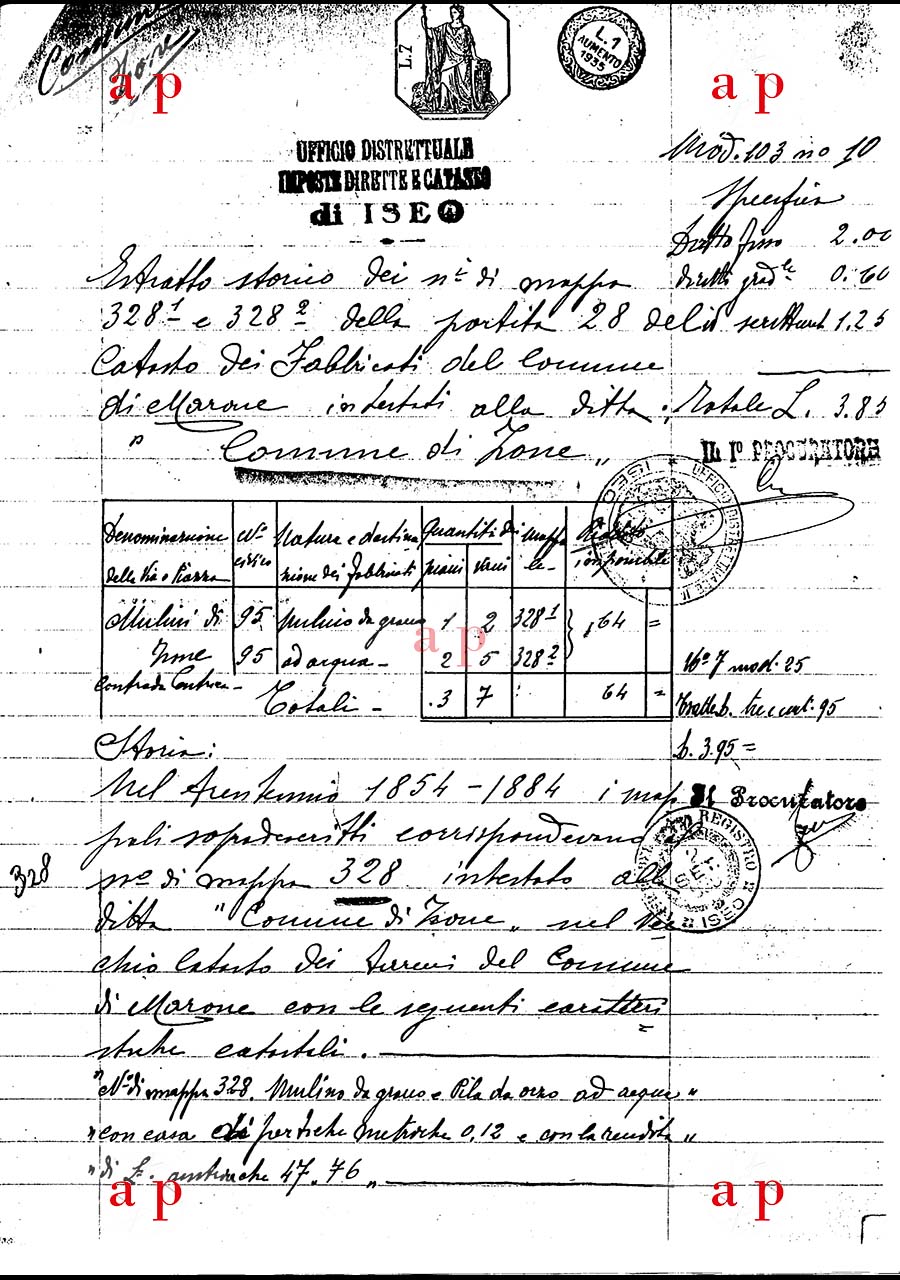 Comune
Zone
a p
L. 7
L. 1
AUMENTO
1935
a p
UFFICIO DISTRETTUALE
IMPOSTE DIRETTE E CATASTO
di ISEO
Mod. 103 no 10
Specifica
Diritto fisso 2.00
diritti grad.li 0.60
scritturt 1.25
Totale L. 3.85
IL Iº PROCURATORE
Estratto storico dei ni di mappa
328 1 e 328 2 della partita 28 del
Catasto dei Fabbricati del Comune
di Marone intestati alla ditta:
" Comune di Zone "
ISEO UFFICIO DISTRETTUALE
Denominazione della Via o Piazza
Nº civico
Natura e destinazione dei Fabbricati
Quantità di
piani vani
Mappale
Reddito imponibile
Mulini di 95 Mulino da grano 1 2 328 1 64 =
Zone 95 ad acqua - 2 5 328 2
Contrada
Totali - 3 7 64 =
a p
Nº 7 mod. 25
95
L. 3.95 =
Il Procuratore
REGISTRO
Storia:
Nel trentennio 1854 - 1884 i map
pali sopradescritti corrispondevano
328
nº di mappa 328 intestato alla
ditta " Comune di Zone " nel Vec
chio Catasto dei Terreni del Comune
di Marone con le seguenti caratteri
=
stiche catastali.
" Nº di mappa 328. Mulino da grano e Pila da orzo ad acqua "
" con casa di pertiche metriche 0,12 e con la rendita "
" di L. austriache 47.76 "
a p
a p